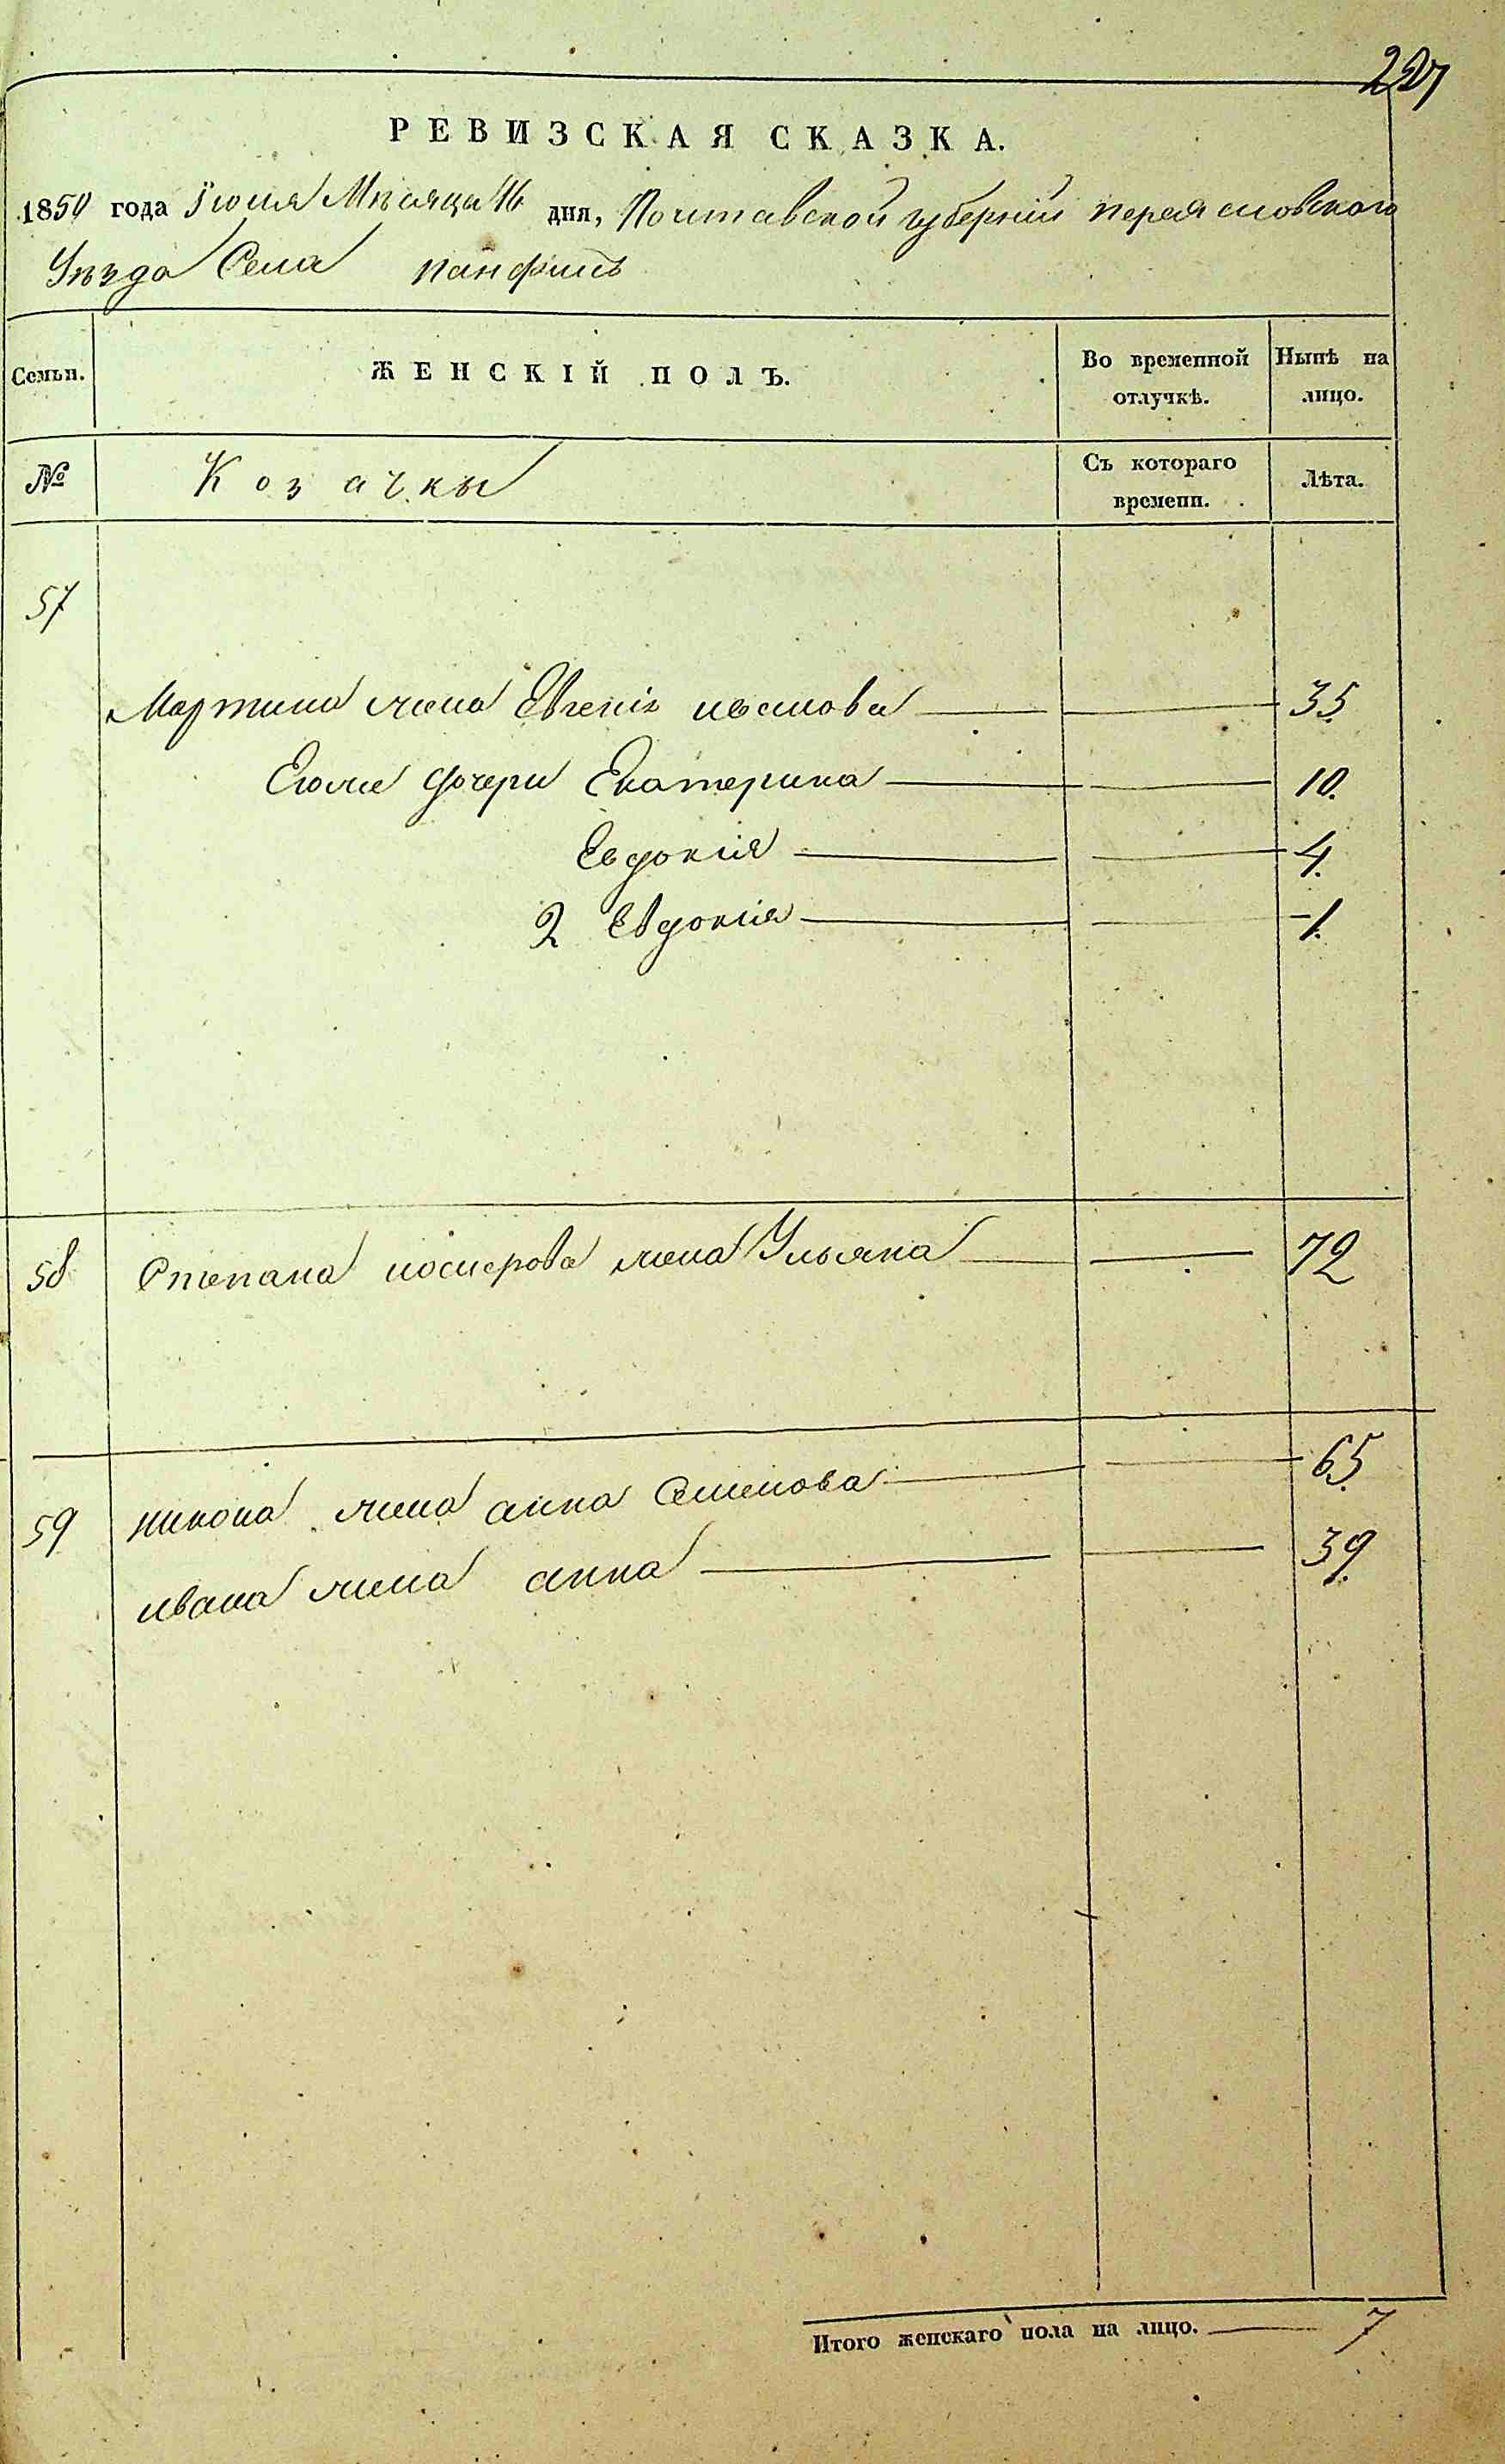 227
РЕВИЗСКАЯ СКАЗКА.
1850 года Іюля Мѣсяца 16 дня, Полтавской губерніи переясловского
Уѣзда Села панфилъ
Семьи. ЖЕНСКІЙ ПОЛЪ. Во временной отлучкѣ. Нынѣ на лицо.
№ Козачкы Съ котораго времени. Лѣта.
57
Мартина жена Евгенія иванова 35.
Егоже дочери Екатерина 10.
Евдокія 4.
2 Евдокія 1.
58 Степана жена Ульяна 72
59 никона жена анна Семенова 65.
ивана жена анна 39.
Итого женскаго пола на лицо. 7